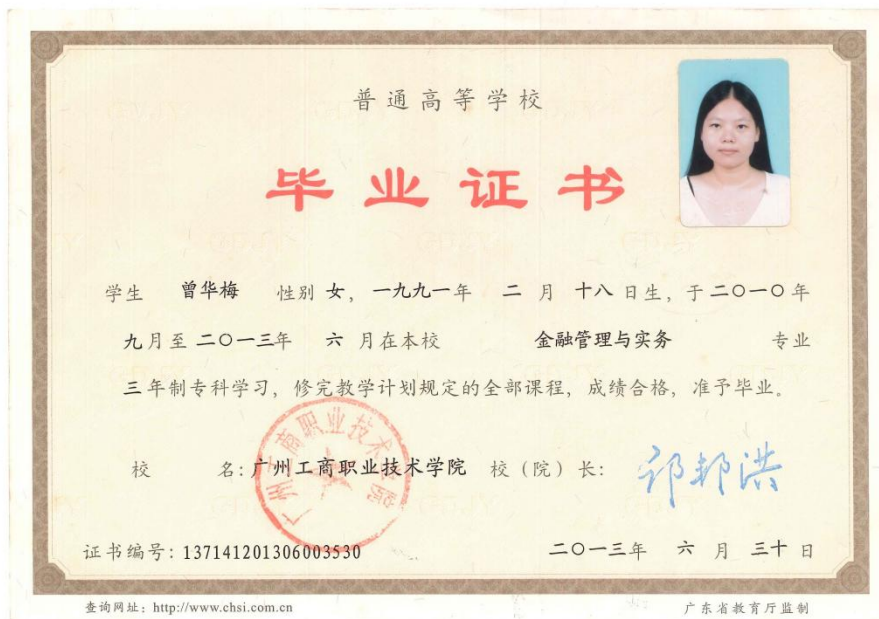 普通高等学校
毕业证书
学生 曾华梅 性别 女，一九九一年 二 月 十八 日生，于二〇一〇年
九月至二〇一三年 六 月在本校 金融管理与实务 专业
三年制专科学习，修完教学计划规定的全部课程，成绩合格，准予毕业。
校 名：广州工商职业技术学院 校（院）长：
广州工商职业技术学院
证书编号：137141201306003530 二〇一三年 六 月 三十 日
查询网址：http://www.chsi.com.cn 广东省教育厅监制